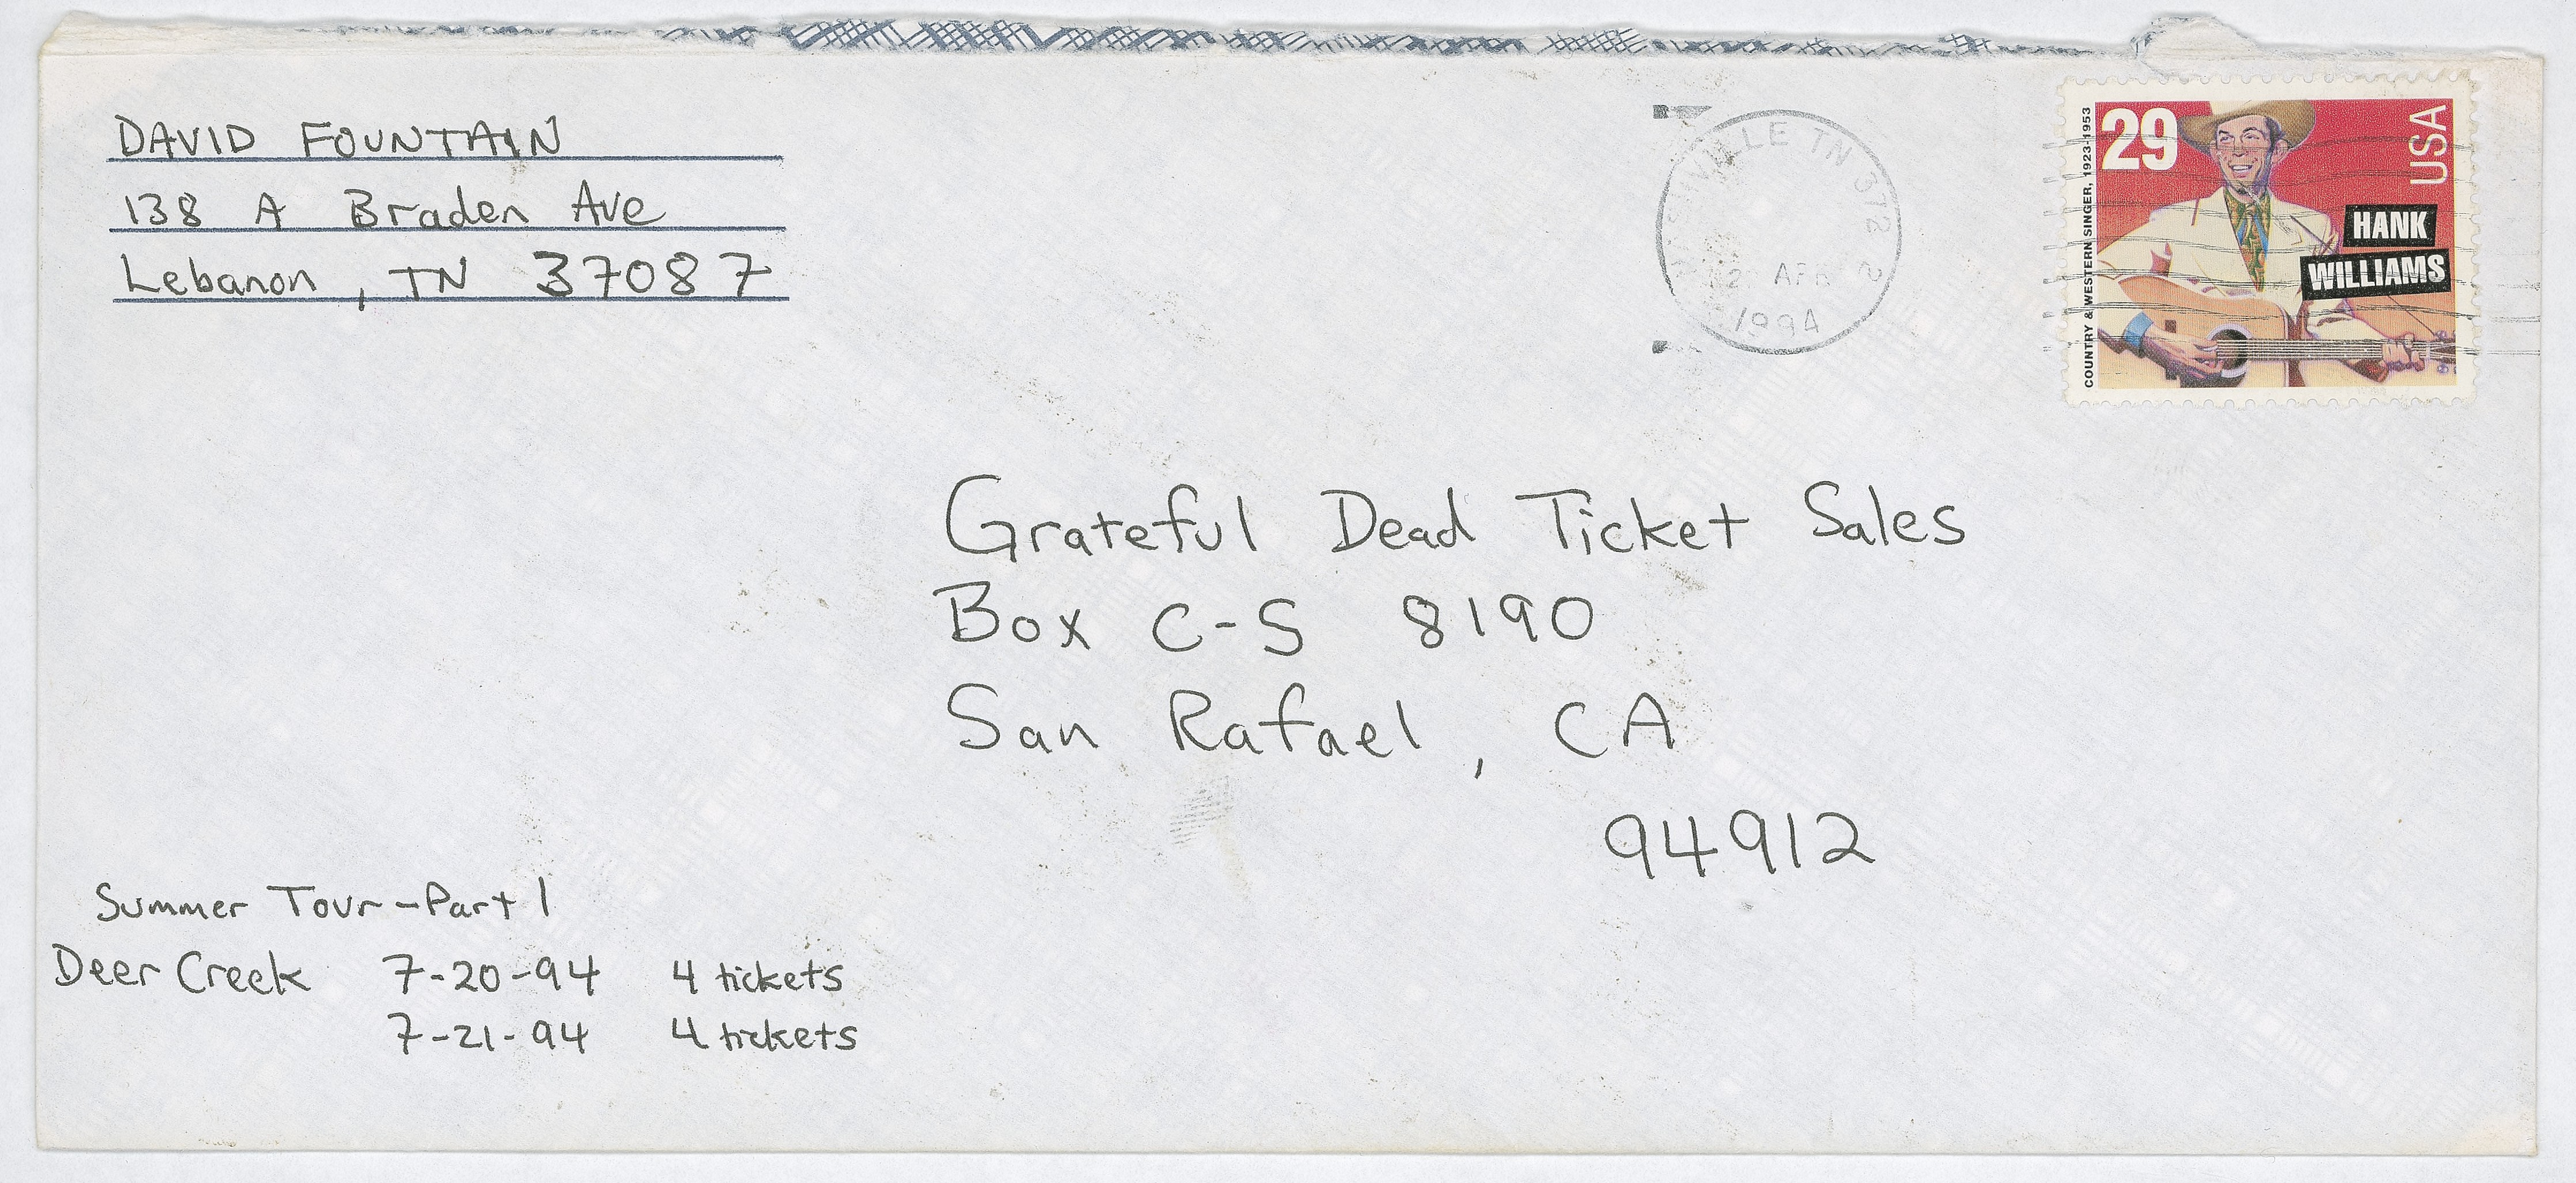 DAVID FOUNTAIN
138 A Braden Ave
Lebanon, TN 37087
VILLE TN 372
APR
1994
COUNTRY & WESTERN SINGER, 1923-1953
29
USA
HANK
WILLIAMS
Grateful Dead Ticket Sales
Box C-S 8190
San Rafael, CA
94912
Summer Tour - Part 1
Deer Creek 7-20-94 4 tickets
7-21-94 4 tickets